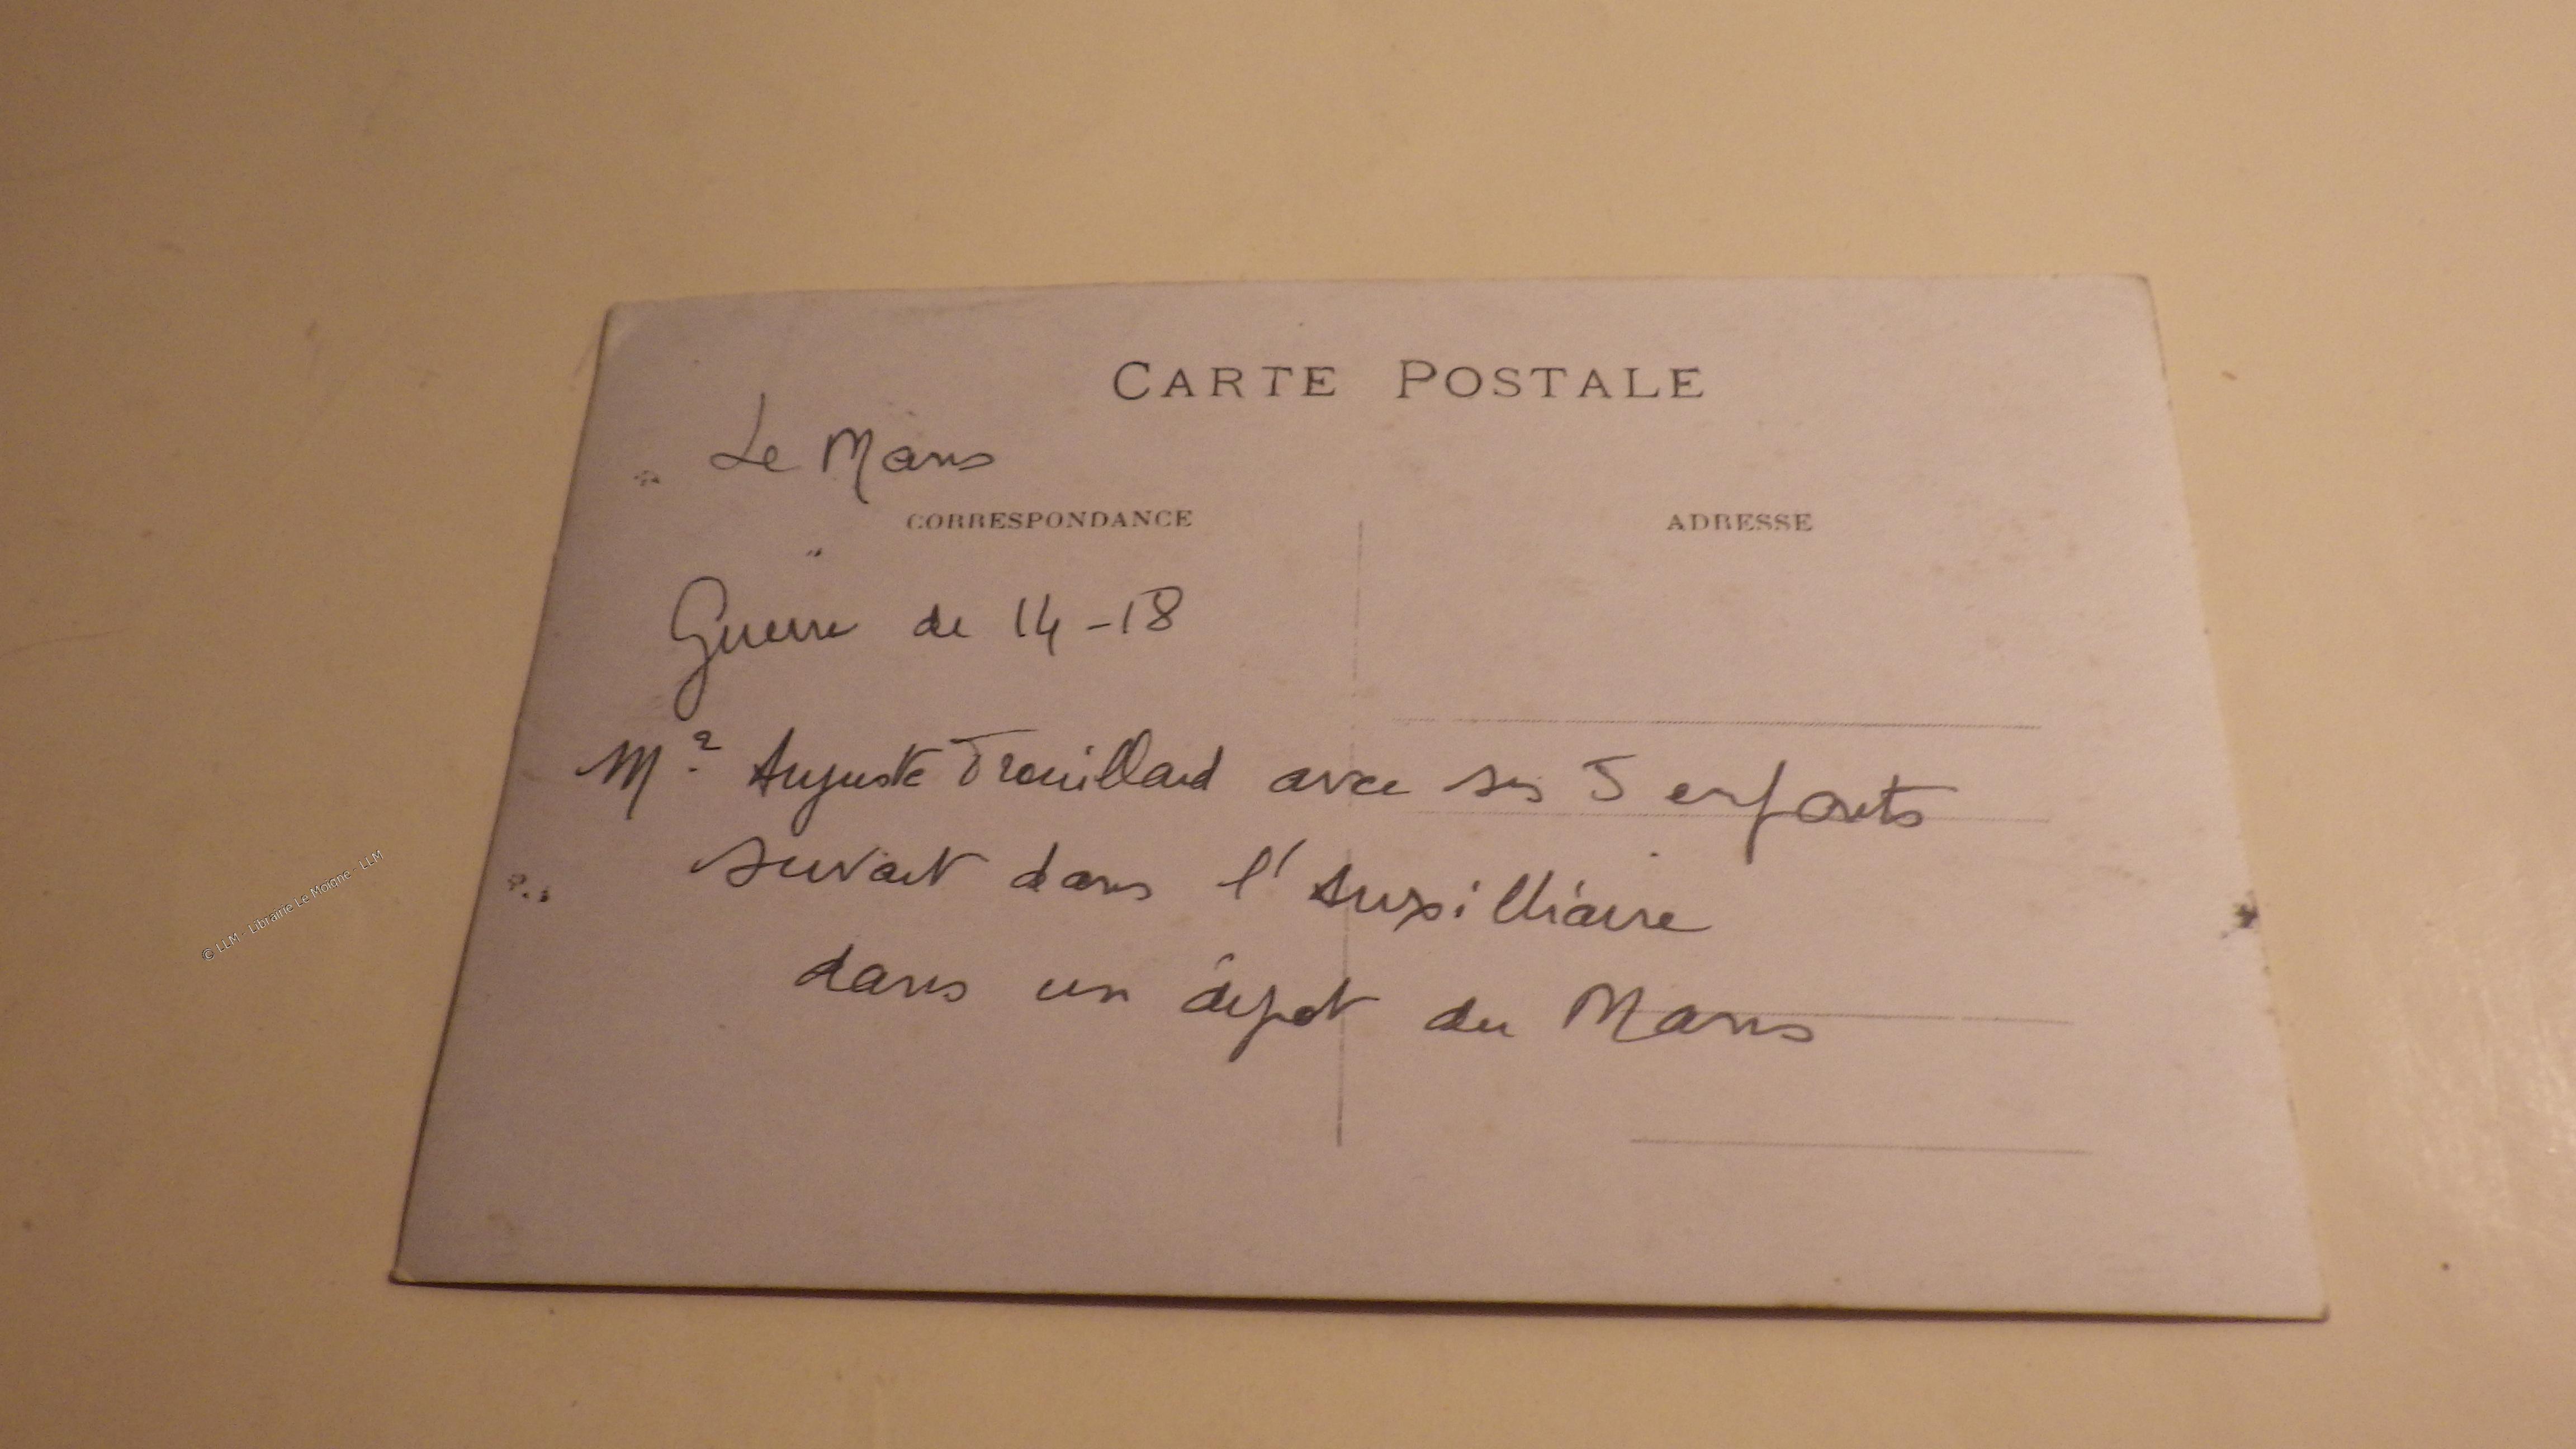 CARTE POSTALE
Le Mans
CORRESPONDANCE
ADRESSE
Guerre de 14-18
Mr Auguste Trouillard avec ses 5 enfants
servait dans l'Auxilliaire
dans un dépot du Mans
© LLM - Librairie Le Moigne - LLM